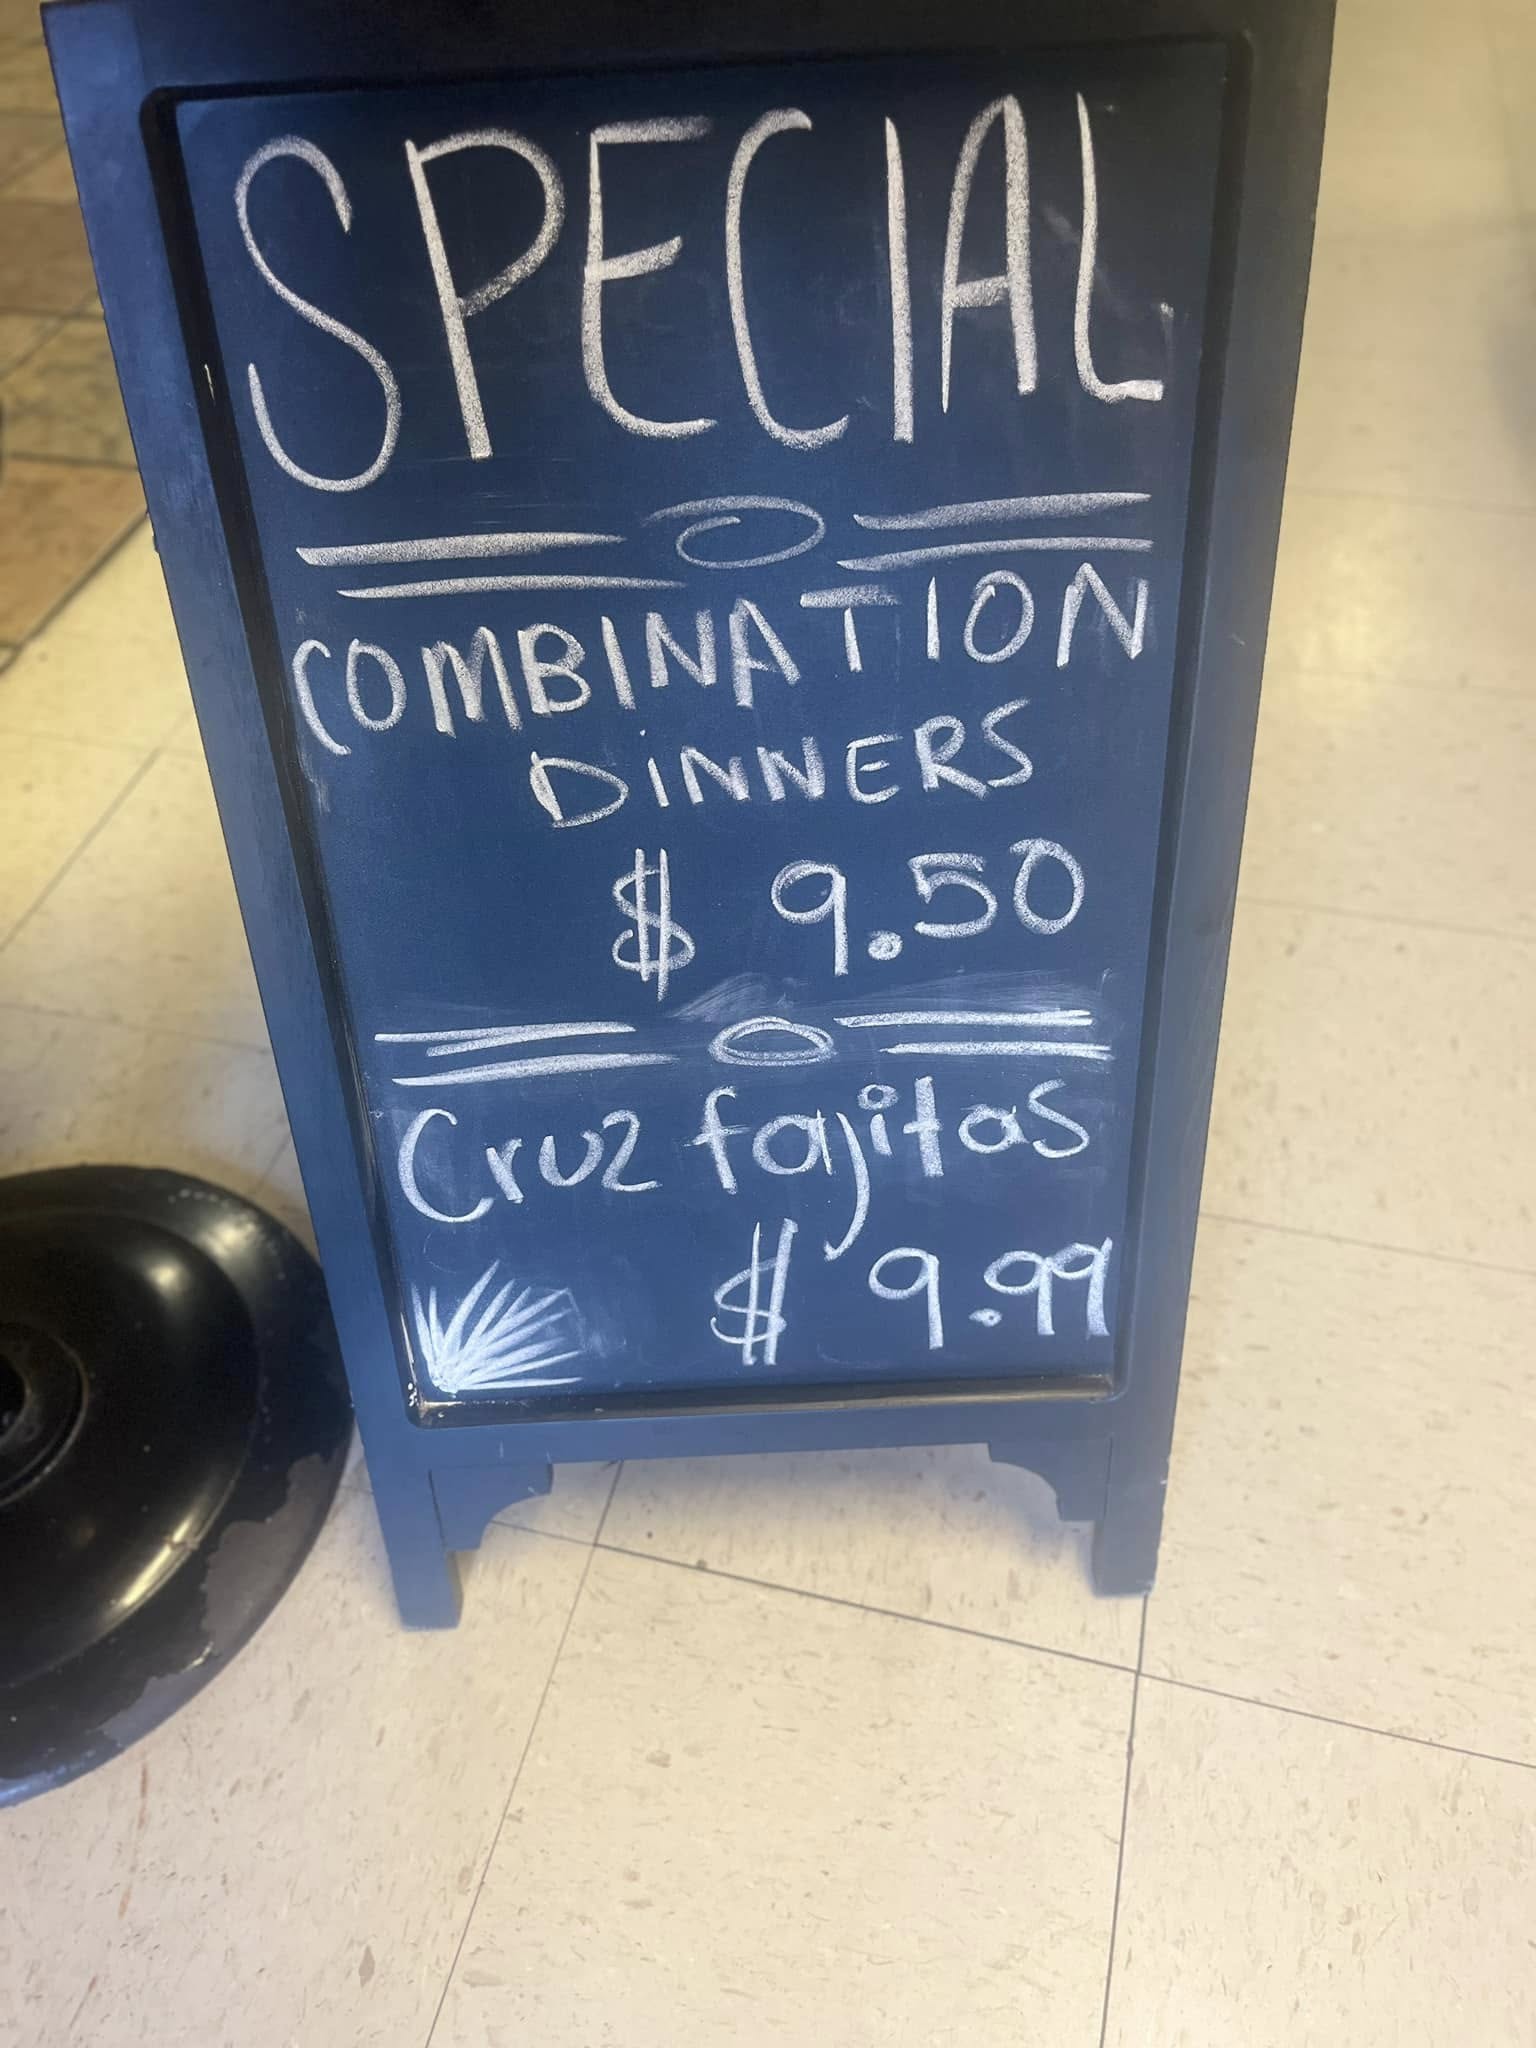 SPECIAL
COMBINATION
DiNNERS
$ 9.50
Cruz fajitas
$ 9.99